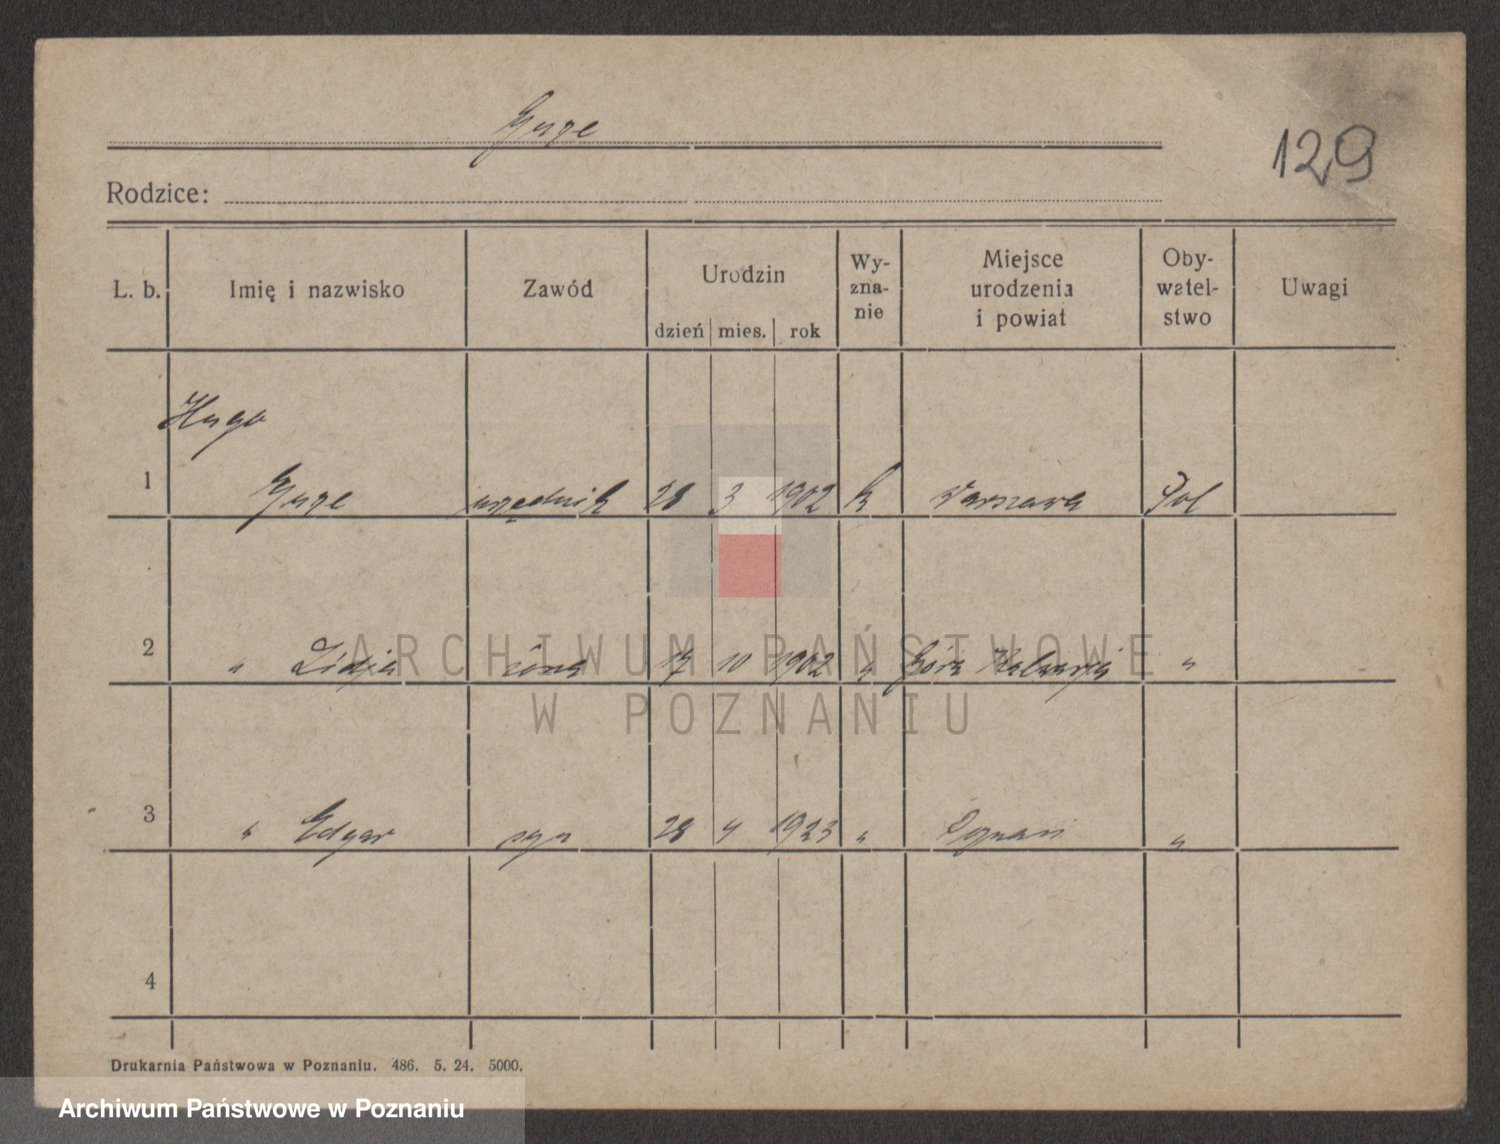 Guze
129
Rodzice:
L. b. Imię i nazwisko Zawód Urodzin dzień mies. rok Wy-zna-nie Miejsce urodzenia i powiat Oby-watel-stwo Uwagi
Hugo
1 Guze urzędnik 28 3 1902 k Warszawa Pol
2 " Lidja żona 17 10 1902 " Góra Kalwarja "
3 " Edgar syn 28 4 1923 " Poznań "
4
ARCHIWUM PAŃSTWOWE
W POZNANIU
Drukarnia Państwowa w Poznaniu. 486. 5. 24. 5000.
Archiwum Państwowe w Poznaniu